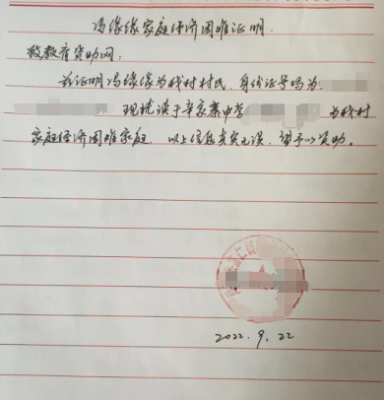 冯缘缘家庭经济困难证明
致教育资助网:
兹证明冯缘缘为我村村民,身份证号码为
现就读于辛家寨中学 为我村
家庭经济困难家庭,以上信息真实无误,望予以资助。
2022.9.22